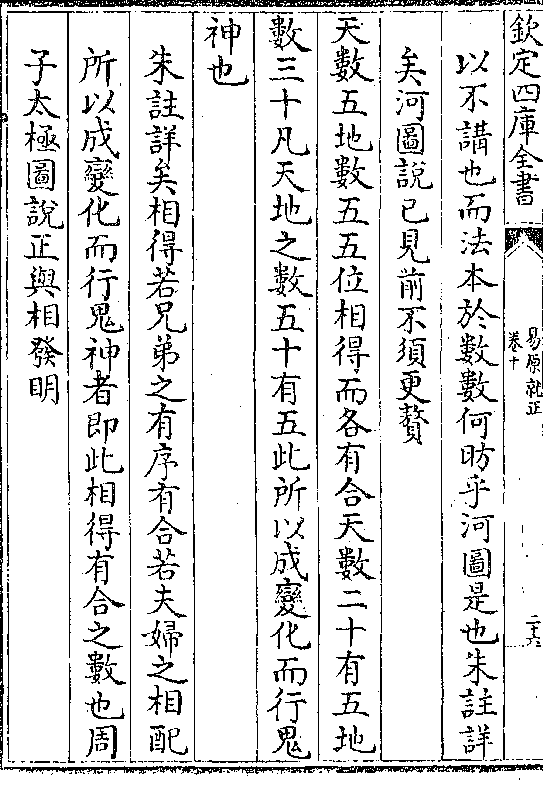 欽定四庫全書
易原就正
卷十
二十六
以不講也而法本於數數何昉乎河圖是也朱註詳
矣河圖說已見前不須更贅
天數五地數五五位相得而各有合天數二十有五地
數三十凡天地之數五十有五此所以成變化而行鬼
神也
朱註詳矣相得若兄弟之有序有合若夫婦之相配
所以成變化而行鬼神者即此相得有合之數也周
子太極圖說正與相發明